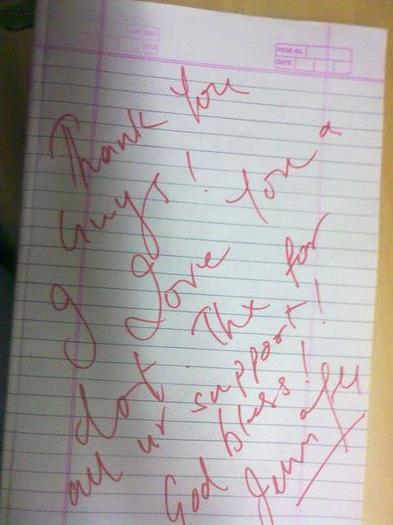 PAGE NO.
DATE
Thank You
Guys!
I Love You a
lot. Thx for
all ur support!
God bless!